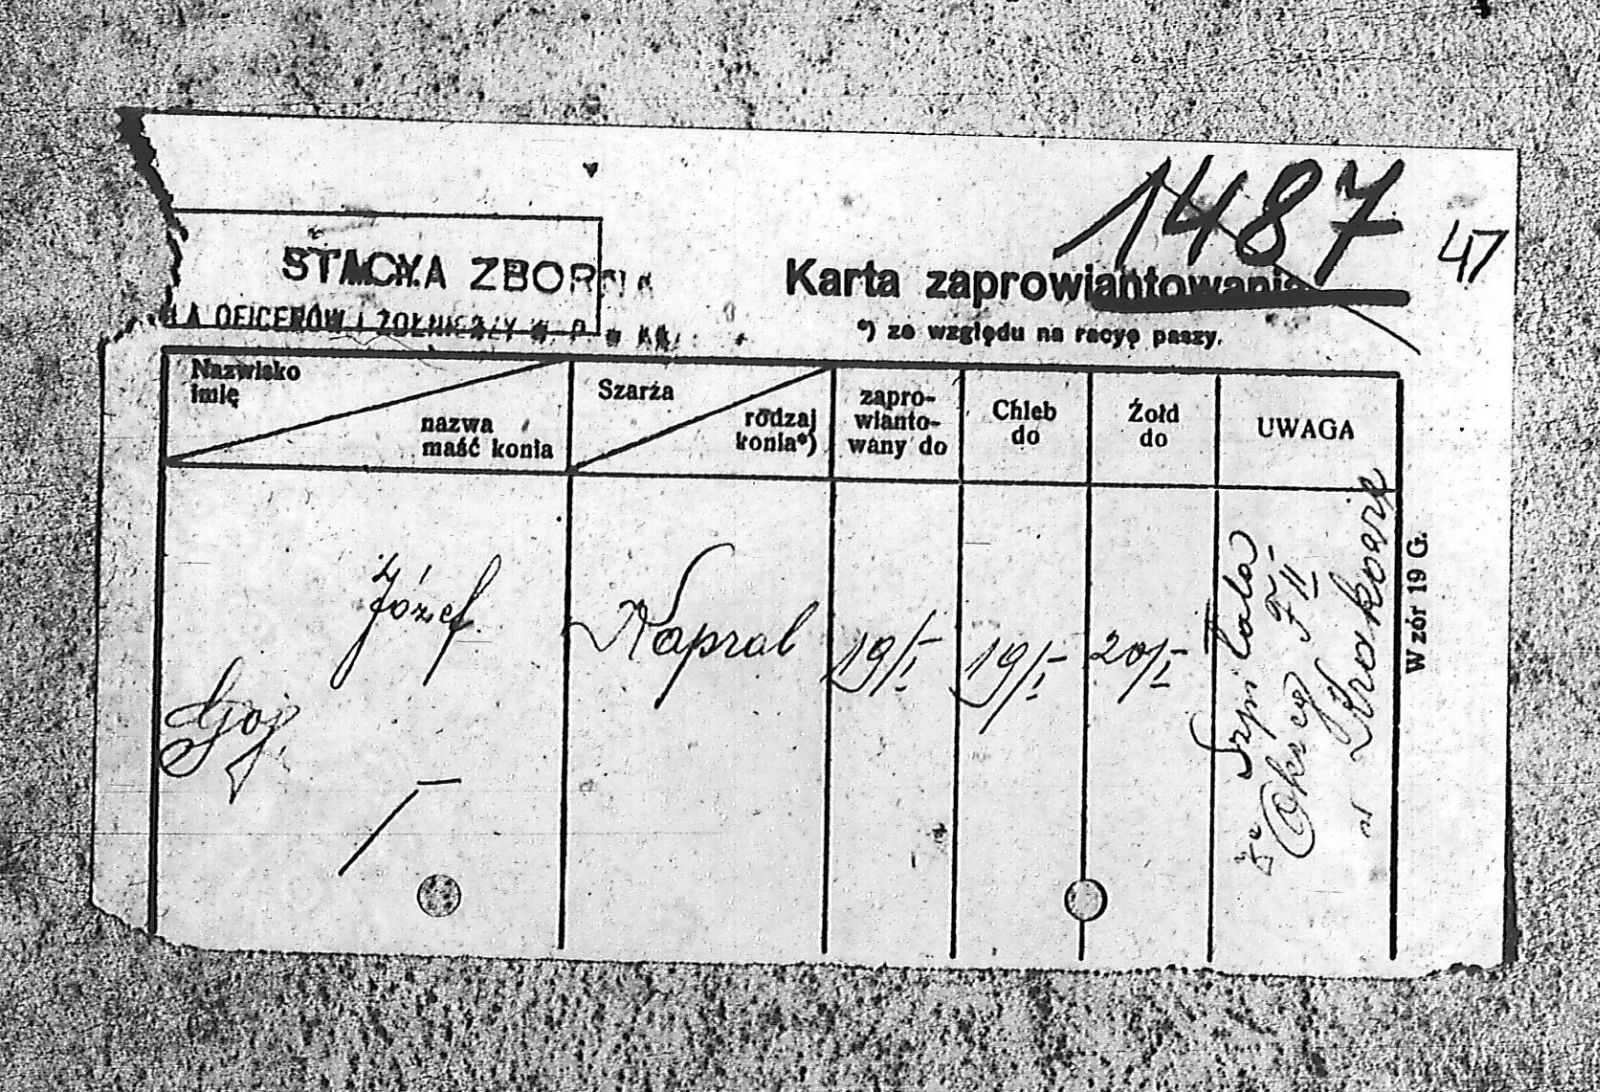 1487
47
STACYA ZBORNA
LA OFICERÓW i ŻOŁNIERZY W. P. w
Karta zaprowiantowania
*) ze względu na racyę paszy.
Nazwisko
imię
nazwa
maść konia
Szarża
rodzaj
konia*)
zapro-
wianto-
wany do
Chleb
do
Żołd
do
UWAGA
Józef
Goj.
Kapral
19/I
19/I
20/I
Ze Szpitala
Okręg II
w Krakowie
Wzór 19 G.